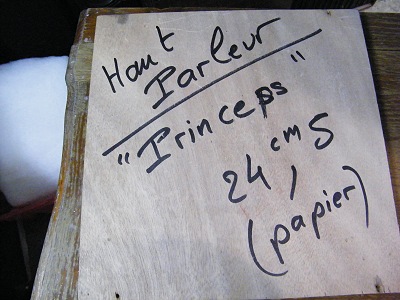 Haut
Parleur
"Princeps"
24 cm 5
(papier)